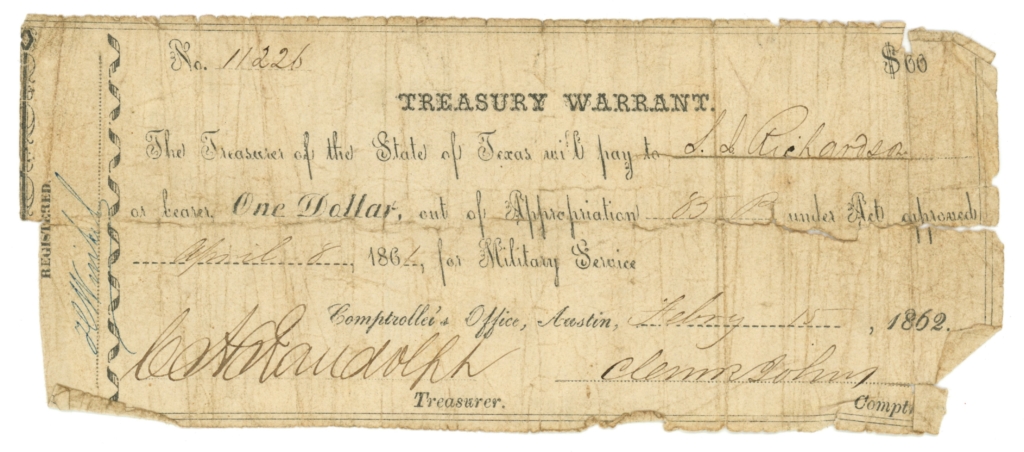 No. 11226 $ 00
TREASURY WARRANT.
The Treasurer of the State of Texas will pay to S. S. Richardson
or bearer, One Dollar, out of Appropriation 83 under Act approved
April 8, 1861, for Military Service
Comptroller's Office, Austin, Febry 15, 1862.
C H Randolph
Clem R Johns
Treasurer. Compt
REGISTERED.